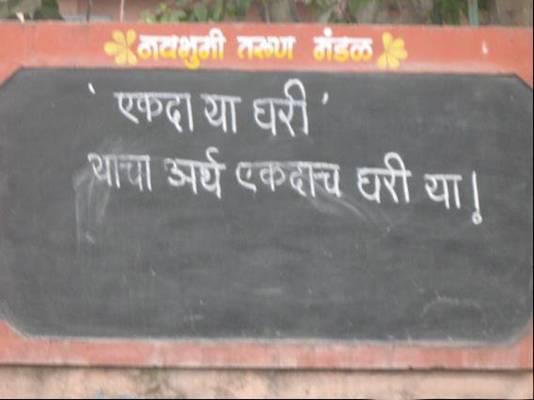 नवभुमी तरुण मंडळ
'एकदा या घरी'
याचा अर्थ एकदाच घरी या!